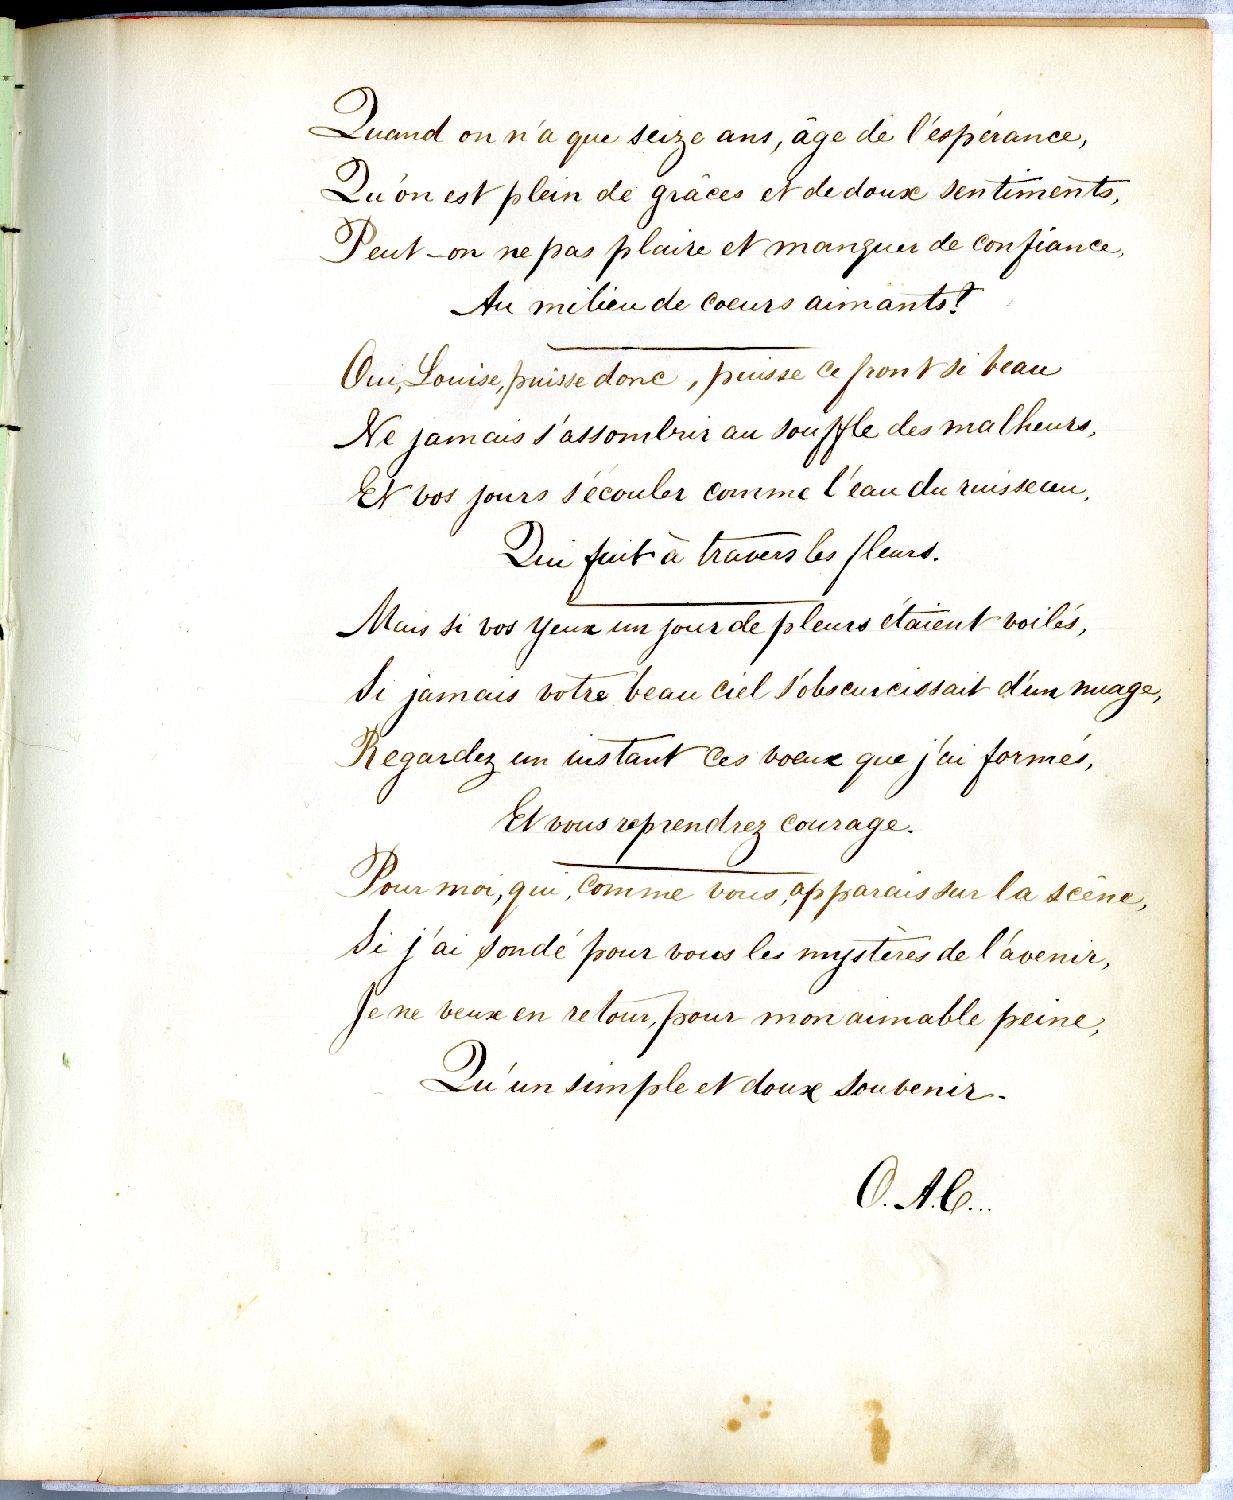 Quand on n'a que seize ans, âge de l'éspérance,
Qu'on est plein de grâces et de doux sentiments,
Peut-on ne pas plaire et manquer de confiance,
Au milieu de coeurs aimants?
Oui, Louise, puisse donc, puisse ce front si beau
Ne jamais s'assombrir au souffle des malheurs,
Et vos jours s'écouler comme l'eau du ruisseau,
Qui fuit à travers les fleurs.
Mais si vos yeux un jour de pleurs étaient voilés,
Si jamais votre beau ciel s'obscurcissait d'un nuage,
Regardez un instant ces voeux que j'ai formés,
Et vous reprendrez courage.
Pour moi, qui, comme vous, apparais sur la scêne,
Si j'ai sondé pour vous les mystères de l'avenir,
Je ne veux en retour, pour mon aimable peine,
Qu'un simple et doux souvenir.
O. A. C...